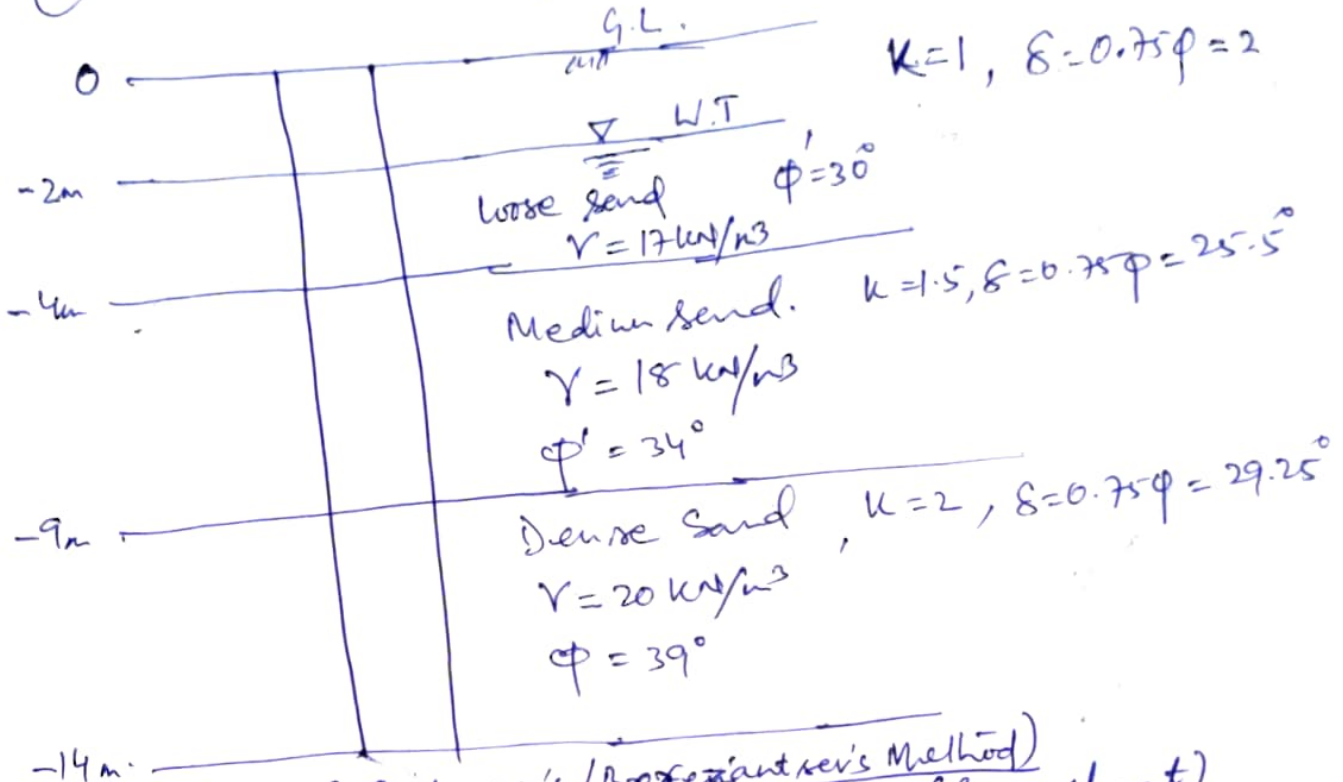 G.L.
0
K=1, δ=0.75φ=2
W.T
-2m
φ'=30°
loose sand
γ=17 kN/m3
-4m
Medium sand. K=1.5, δ=0.75φ=25.5°
γ=18 kN/m3
φ'=34°
-9m
Dense Sand, K=2, δ=0.75φ=29.25°
γ=20 kN/m3
φ=39°
-14m.
Method)